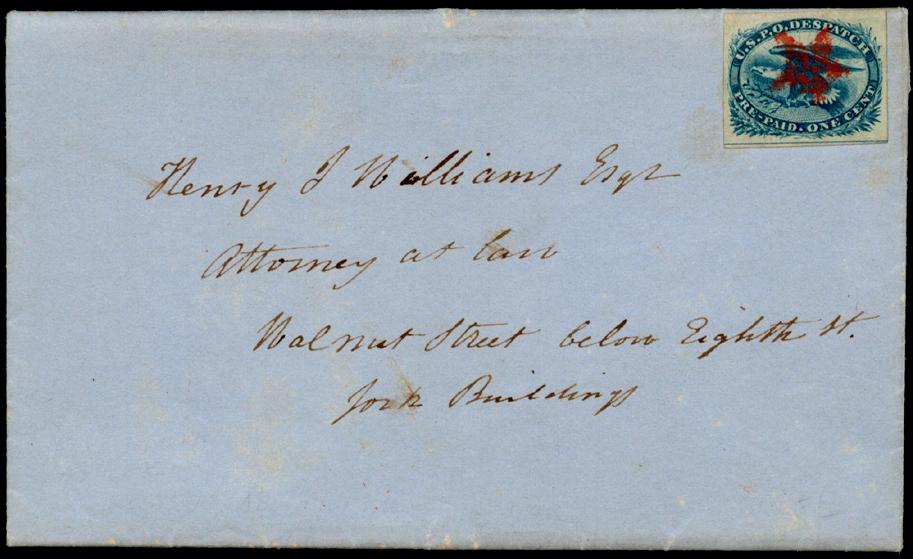 U.S.P.O. DESPATCH
PRE-PAID. ONE CENT
Henry J Williams Esqr
Attorney at law
Walnut Street below Eighth St.
York Buildings